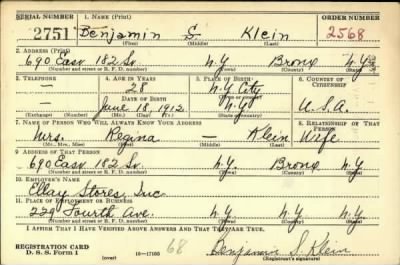 SERIAL NUMBER 1. NAME (Print) ORDER NUMBER
2751 Benjamin S Klein 2568
(First) (Middle) (Last)
2. ADDRESS (Print)
690 East 182 St. N.Y. Bronx N.Y.
(Number and street or R. F. D. number) (Town) (County) (State)
3. TELEPHONE 4. AGE IN YEARS 5. PLACE OF BIRTH 6. COUNTRY OF CITIZENSHIP
— 28 N.Y. City
DATE OF BIRTH (Town or county)
— June 18, 1912 N.Y. U.S.A.
(Exchange) (Number) (Mo.) (Day) (Yr.) (State or country)
7. NAME OF PERSON WHO WILL ALWAYS KNOW YOUR ADDRESS 8. RELATIONSHIP OF THAT PERSON
Mrs. Regina — Klein Wife
(Mr., Mrs., Miss) (First) (Middle) (Last)
9. ADDRESS OF THAT PERSON
690 East 182 St. N.Y. Bronx N.Y.
(Number and street or R. F. D. number) (Town) (County) (State)
10. EMPLOYER'S NAME
Ellay Stores, Inc.
11. PLACE OF EMPLOYMENT OR BUSINESS
Fourth Ave. N.Y. N.Y. N.Y.
(Number and street or R. F. D. number) (Town) (County) (State)
I AFFIRM THAT I HAVE VERIFIED ABOVE ANSWERS AND THAT THEY ARE TRUE.
REGISTRATION CARD
D. S. S. Form 1 (over) 16—17105 68 Benjamin S. Klein
(Registrant's signature)